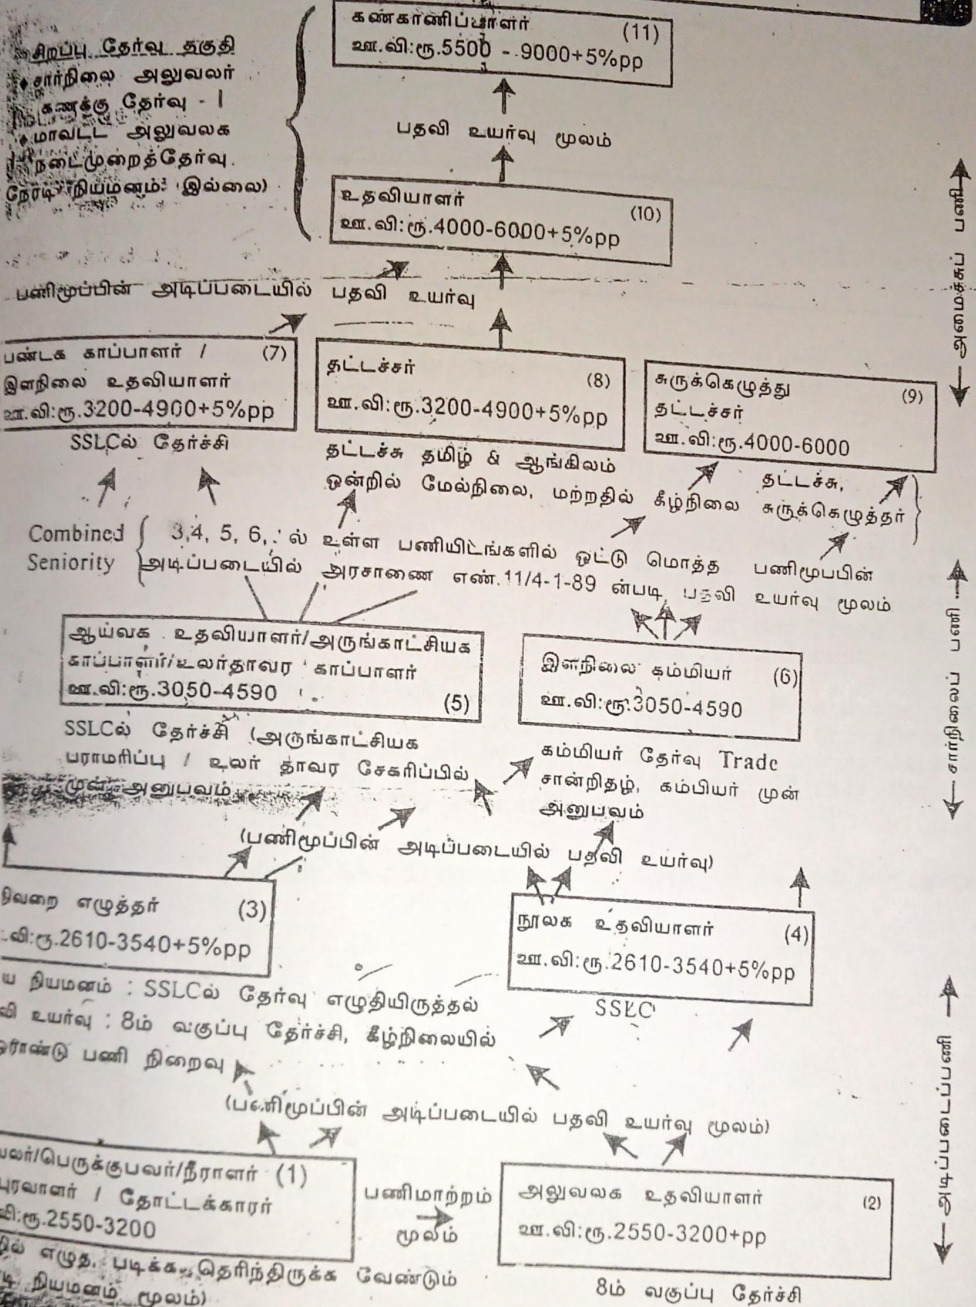 கண்காணிப்பாளர் (11)
ஊ.வி:ரூ.5500 - 9000+5%pp
சிறப்பு தேர்வு தகுதி
சார்நிலை அலுவலர்
கணக்கு தேர்வு - I
மாவட்ட அலுவலக
நடைமுறைத்தேர்வு.
நேரடி நியமனம்: இல்லை)
பதவி உயர்வு மூலம்
உதவியாளர் (10)
ஊ.வி:ரூ.4000-6000+5%pp
பணிமூப்பின் அடிப்படையில் பதவி உயர்வு
அமைச்சுப் பணி
பண்டக காப்பாளர் / (7)
இளநிலை உதவியாளர்
ஊ.வி:ரூ.3200-4900+5%pp
SSLCல் தேர்ச்சி
தட்டச்சர் (8)
ஊ.வி:ரூ.3200-4900+5%pp
தட்டச்சு தமிழ் & ஆங்கிலம்
ஒன்றில் மேல்நிலை, மற்றதில் கீழ்நிலை
சுருக்கெழுத்து (9)
தட்டச்சர்
ஊ.வி:ரூ.4000-6000
தட்டச்சு,
சுருக்கெழுத்தர்
Combined
Seniority
3,4, 5, 6, ல் உள்ள பணியிடங்களில் ஒட்டு மொத்த பணிமூப்பின்
அடிப்படையில் அரசாணை எண்.11/4-1-89 ன்படி, பதவி உயர்வு மூலம்
ஆய்வக உதவியாளர்/அருங்காட்சியக
காப்பாளர்/உலர்தாவர காப்பாளர்
ஊ.வி:ரூ.3050-4590 (5)
SSLCல் தேர்ச்சி (அருங்காட்சியக
பராமரிப்பு / உலர் தாவர சேகரிப்பில்
முன் அனுபவம்
இளநிலை கம்மியர் (6)
ஊ.வி:ரூ.3050-4590
கம்மியர் தேர்வு Trade
சான்றிதழ், கம்பியர் முன்
அனுபவம்
சார்நிலைப் பணி
(பணிமூப்பின் அடிப்படையில் பதவி உயர்வு)
எழுத்தர் (3)
ரூ.2610-3540+5%pp
நியமனம் : SSLCல் தேர்வு எழுதியிருத்தல்
உயர்வு : 8ம் வகுப்பு தேர்ச்சி, கீழ்நிலையில்
பணி நிறைவு
நூலக உதவியாளர் (4)
ஊ.வி:ரூ.2610-3540+5%pp
SSLC
(பணிமூப்பின் அடிப்படையில் பதவி உயர்வு மூலம்)
அடிப்படைப்பணி
/பெருக்குபவர்/நீராளர் (1)
/ தோட்டக்காரர்
ரூ.2550-3200
எழுத, படிக்க தெரிந்திருக்க வேண்டும்
நியமனம் மூலம்)
பணிமாற்றம்
மூலம்
அலுவலக உதவியாளர் (2)
ஊ.வி:ரூ.2550-3200+pp
8ம் வகுப்பு தேர்ச்சி